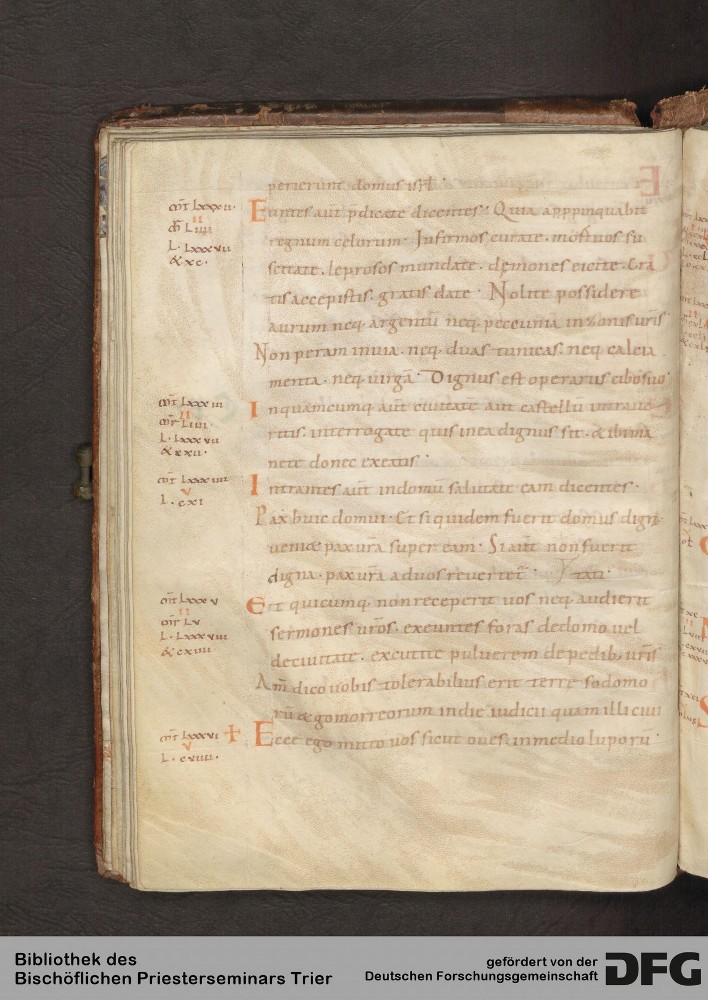 perierunt domus isrl̄ ·
mt̄ lxxxii·
Euntes aut̄ p̄dicate dicentes · Quia appropinquabit
II
liiii
regnum celorum · Infirmos curate · mortuos su
L · lxxxvii
& xc ·
scitate · leprosos mundate · demones eicite · Gra
tis accepistis · gratis date · Nolite possidere
aurum neq · argentū neq · peccunia in zonis uris̄
Non peram in uia · neq · duas tunicas · neq calcia
menta · neq · uirgā · Dignus est operarius cibo suo
mt̄ lxxxiii
In quamcumq aut̄ ciuitatē aut castellū intraue
II
mr̄ liiii
L · lxxxvii
ritis · interrogate quis in ea dignus sit · & ibi ma
& xxii ·
nete donec exeatis ·
mt̄ lxxxiiii
Intrantes aut̄ in domū salutate eam dicentes ·
V
L · cxi
Pax huic domui · Et si quidem fuerit domus digna
ueniæ pax ura̅ super eam · Si aut̄ non fuerit
digna · pax ura̅ ad uos reuertet̄ · tati ·
mt̄ lxxxv
Et quicumq · non receperit uos neq · audierit
II
mr̄ lv
L · lxxxviii
sermones uros̄ · exeuntes foras de domo uel
& cxiiii
de ciuitate · excutite puluerem de pedib; uris̄
Am̄ dico uobis tolerabilius erit terre sodomo
rū & gomorreorum in die iudicii quam illi ciui
mt̄ lxxxvi +
V
Ecce ego mitto uos sicut oues · in medio luporū ·
L · cviiii ·
Bibliothek des
Bischöflichen Priesterseminars Trier
gefördert von der
Deutschen Forschungsgemeinschaft
DFG